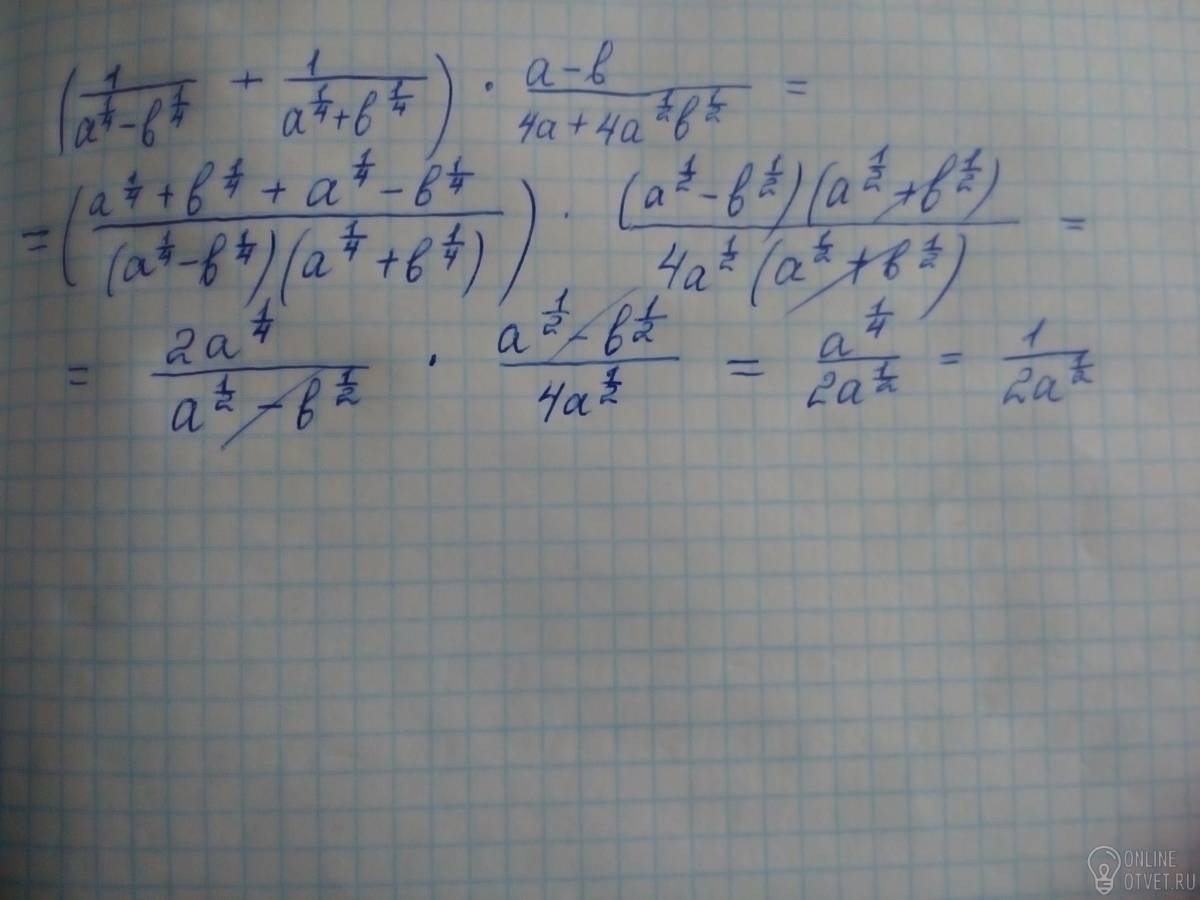 (1/(a^(1/4)-b^(1/4)) + 1/(a^(1/4)+b^(1/4))) · (a-b)/(4a+4a^(1/2)b^(1/2)) =
= ((a^(1/4)+b^(1/4)+a^(1/4)-b^(1/4))/((a^(1/4)-b^(1/4))(a^(1/4)+b^(1/4)))) · ((a^(1/2)-b^(1/2))(a^(1/2)+b^(1/2)))/(4a^(1/2)(a^(1/2)+b^(1/2))) =
= (2a^(1/4))/(a^(1/2)-b^(1/2)) · (a^(1/2)-b^(1/2))/(4a^(1/2)) = a^(1/4)/(2a^(1/2)) = 1/(2a^(1/2))
ONLINE
OTVET.RU